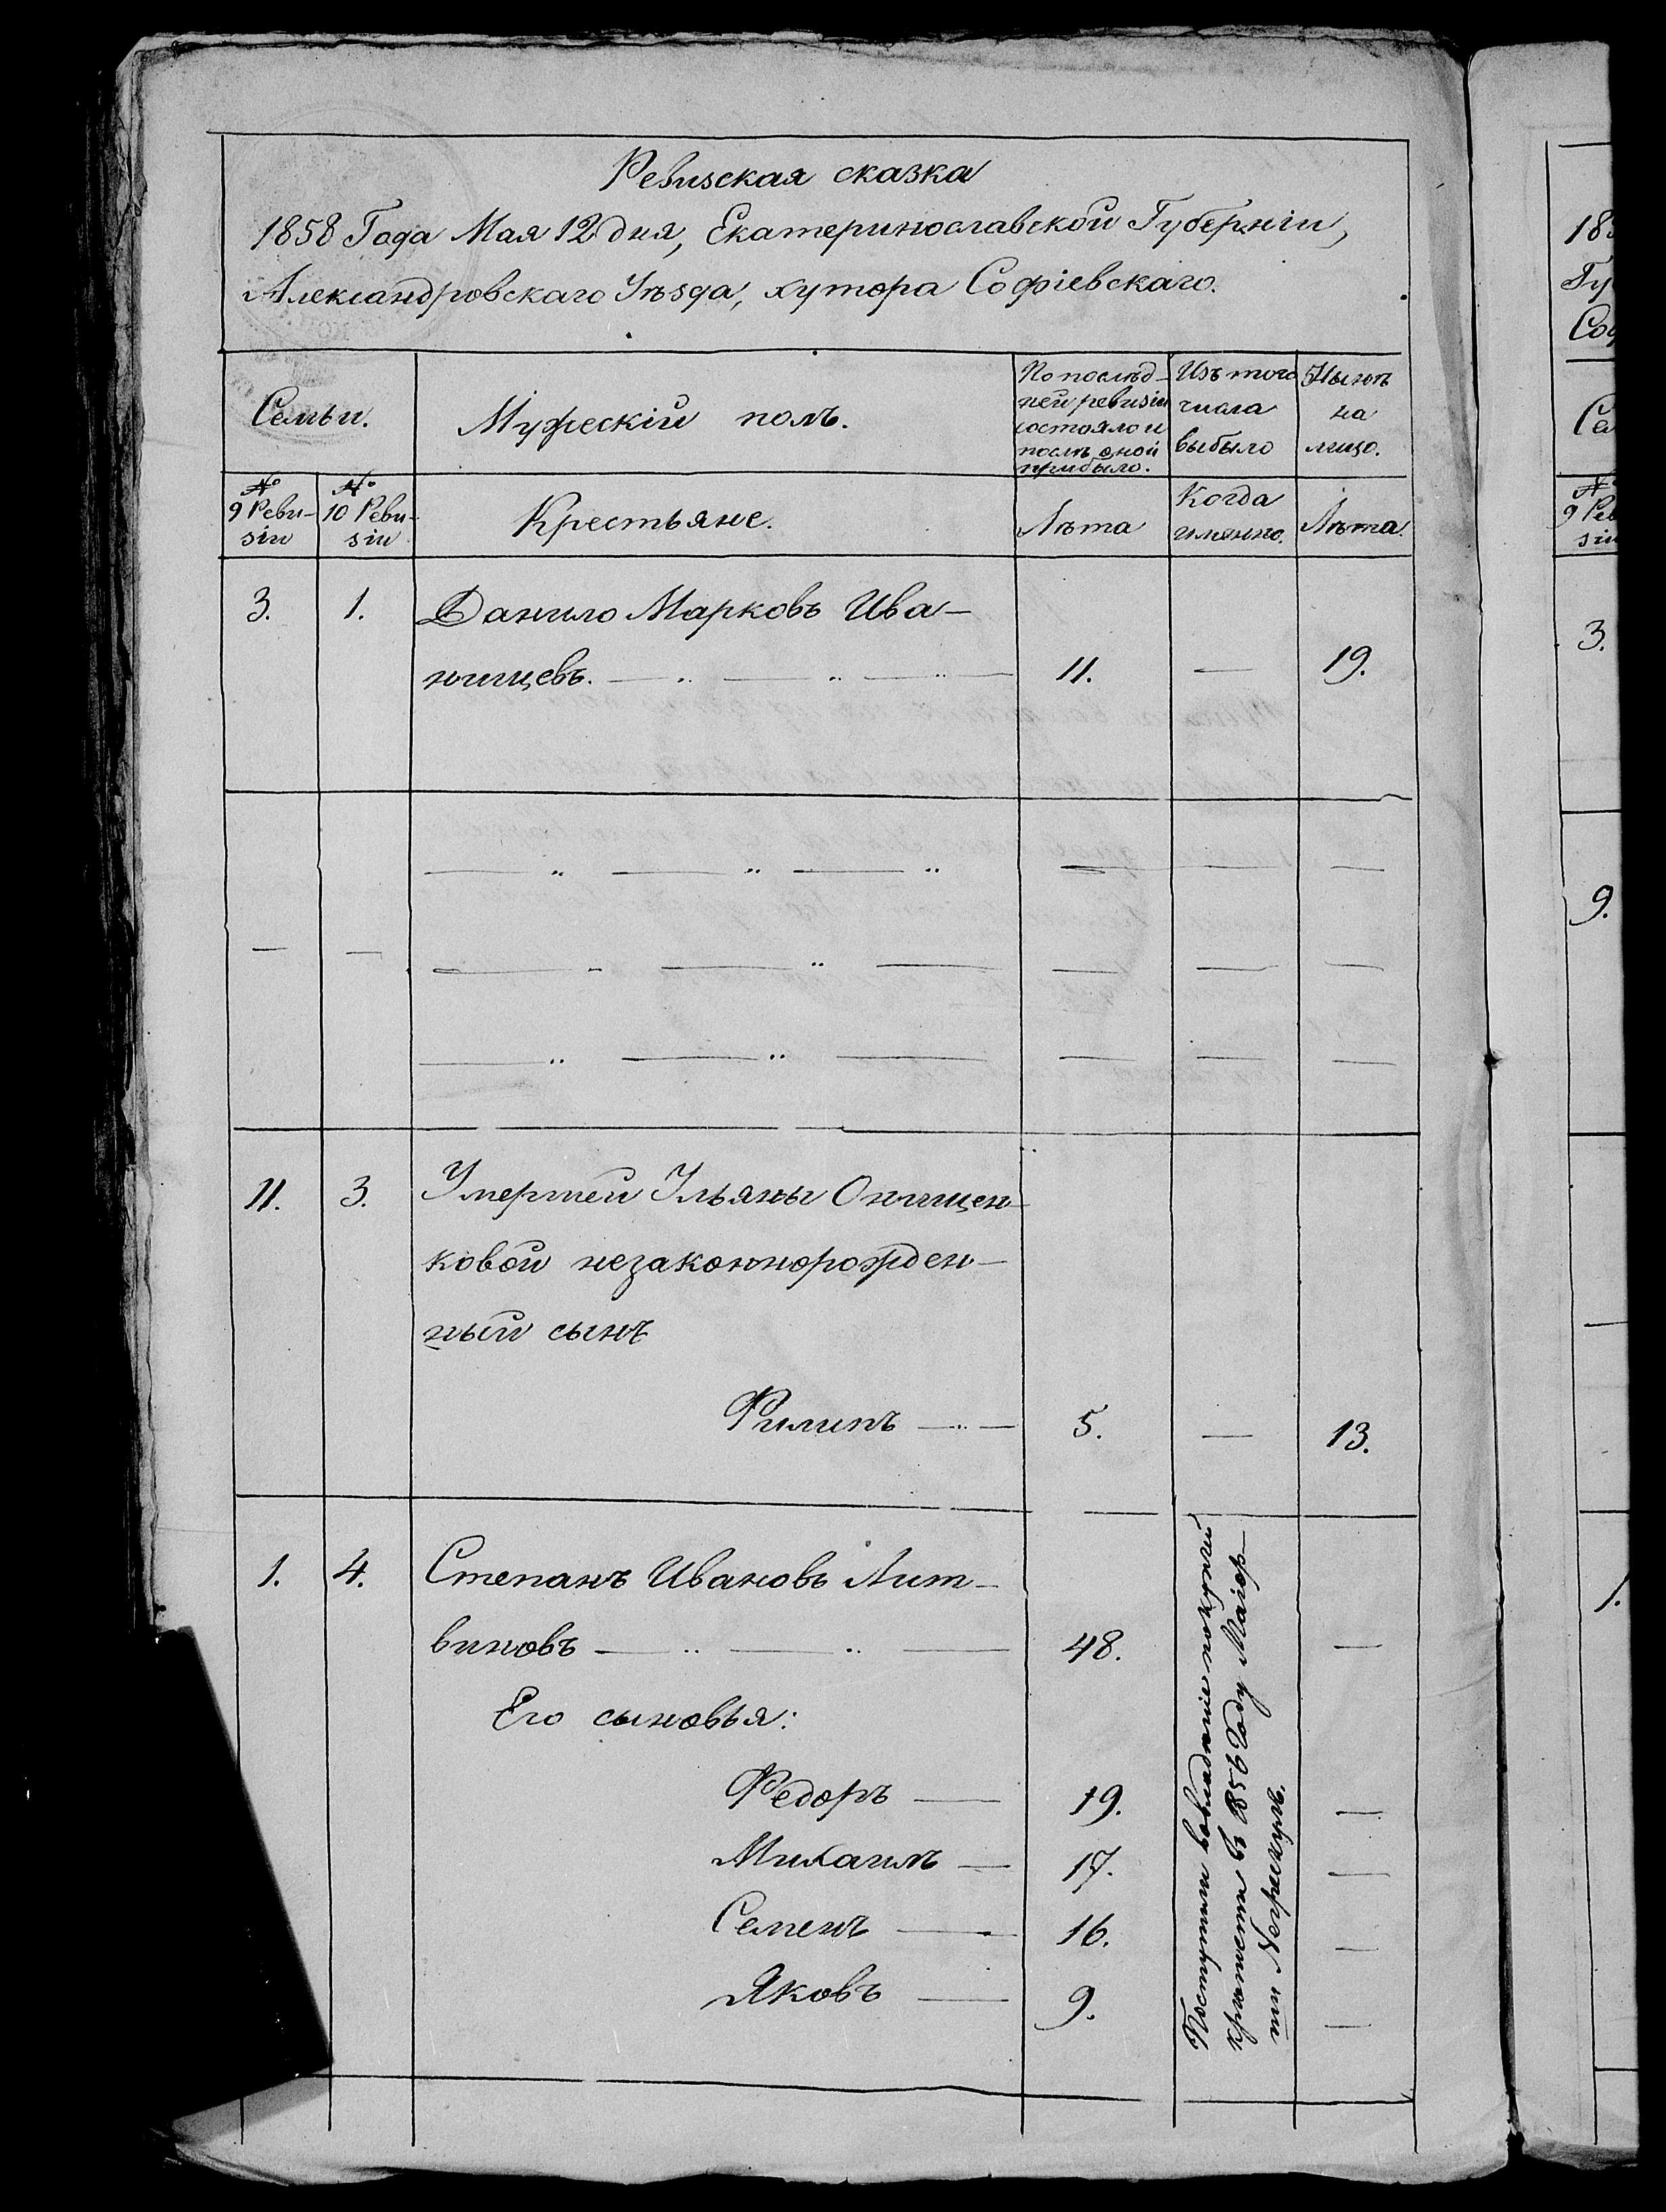 Ревизская сказка
1858 Года Мая 12 дня, Екатеринославской Губерніи,
Александровскаго Уѣзда, хутора Софіевскаго.
Семьи.
Мужескій полъ.
По послѣд-
ней ревизіи
состояло и
послѣ оной
прибыло.
Изъ того
числа
выбыло
Нынѣ
на
лицо.
№
9 Реви-
зіи
№
10 Реви-
зіи
Крестьяне.
Лѣта
Когда
именно.
Лѣта.
3. 1. Данило Марковъ Ива-
нищевъ. 11. — 19.
11. 3. Умершей Ульяны Онищен-
ковой незаконнорожден-
ный сынъ
Филипъ 5. — 13.
1. 4. Степанъ Ивановъ Лит-
виновъ 48. —
Его сыновья:
Федоръ — 19. —
Михаилъ — 17. —
Семенъ — 16. —
Яковъ — 9. —
Поступили во владѣніе по купчей
крѣпости въ 1856 Году Маіор-
ши
183
Гу
Соф
Сем
№
9 Рев
зіи
3.
9.
1.